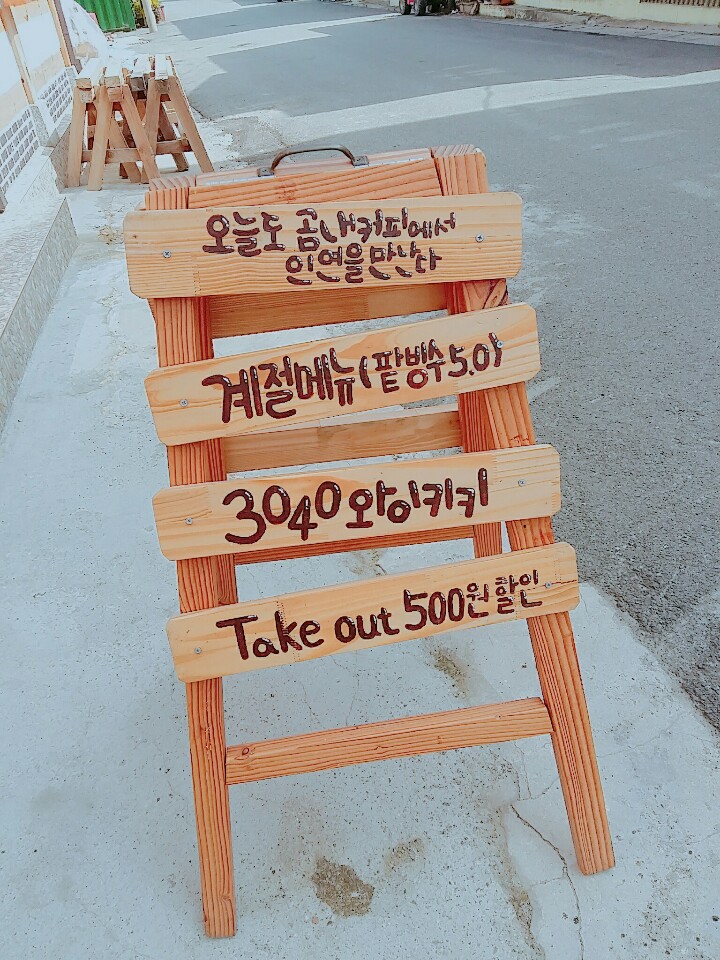 오늘도 곰내커피에서
인연을 만난다
계절메뉴(팥빙수5.0)
3040 와이키키
Take out 500원 할인